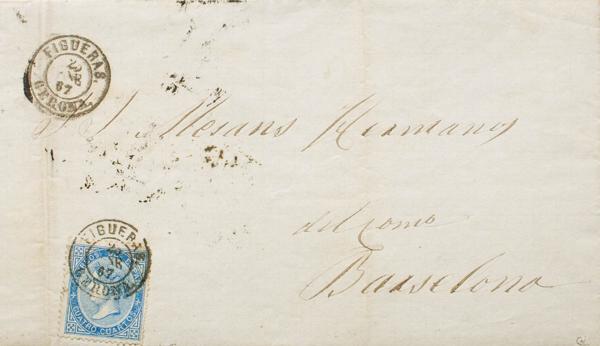 FIGUERAS.
67
GERONA.
Mesans Hermanos
del Como
Barselona
FIGUERAS.
67
GERONA.
CUATRO CUARTOS